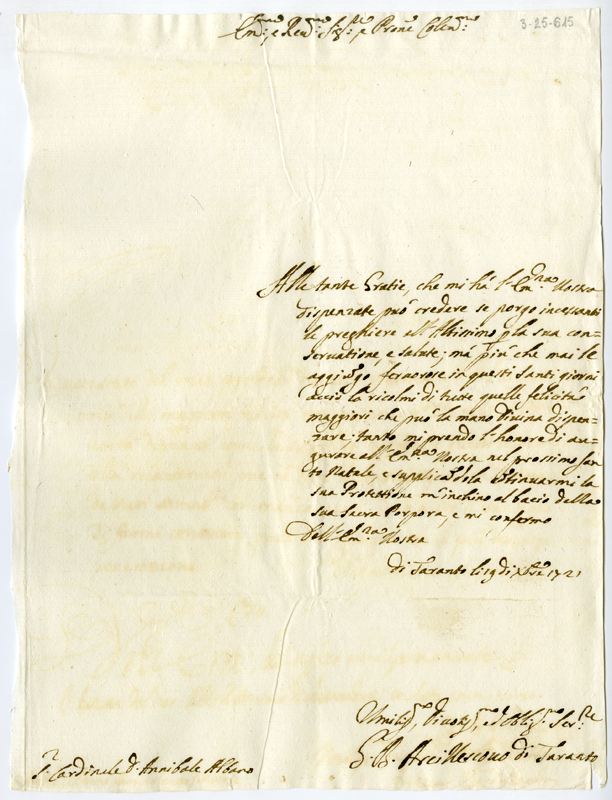 3-25-615
Em:mo e Rev:mo Sig:re e Prone Colen:mo
Alle tante Gratie, che mi há l'Em:nza Vostra
dispenzate può credere se porgo incessanti
le preghiere all'Altissimo p la sua con=
servatione, e salute; mà più che mai le
aggiungo fervorose in questi Santi giorni
acciò la ricolmi di tutte quelle felicità
maggiori che può la mano Divina dispen=
zare; tanto mi prendo l'honore di au=
gurare all'Em:nza Vostra nel prossimo San
to Natale, e supplicandola continuarmi la
sua Protettione m'inchino al bacio della
sua Sacra Porpora, e mi confermo
Dell'Em:nza Vostra
di Taranto li 19 di Xbre 1721
Umiliss:mo, Divotiss:mo, ed Oblig:mo Ser:re
G. B. Arcivescovo di Taranto
S.r Cardinale d. Annibale Albano